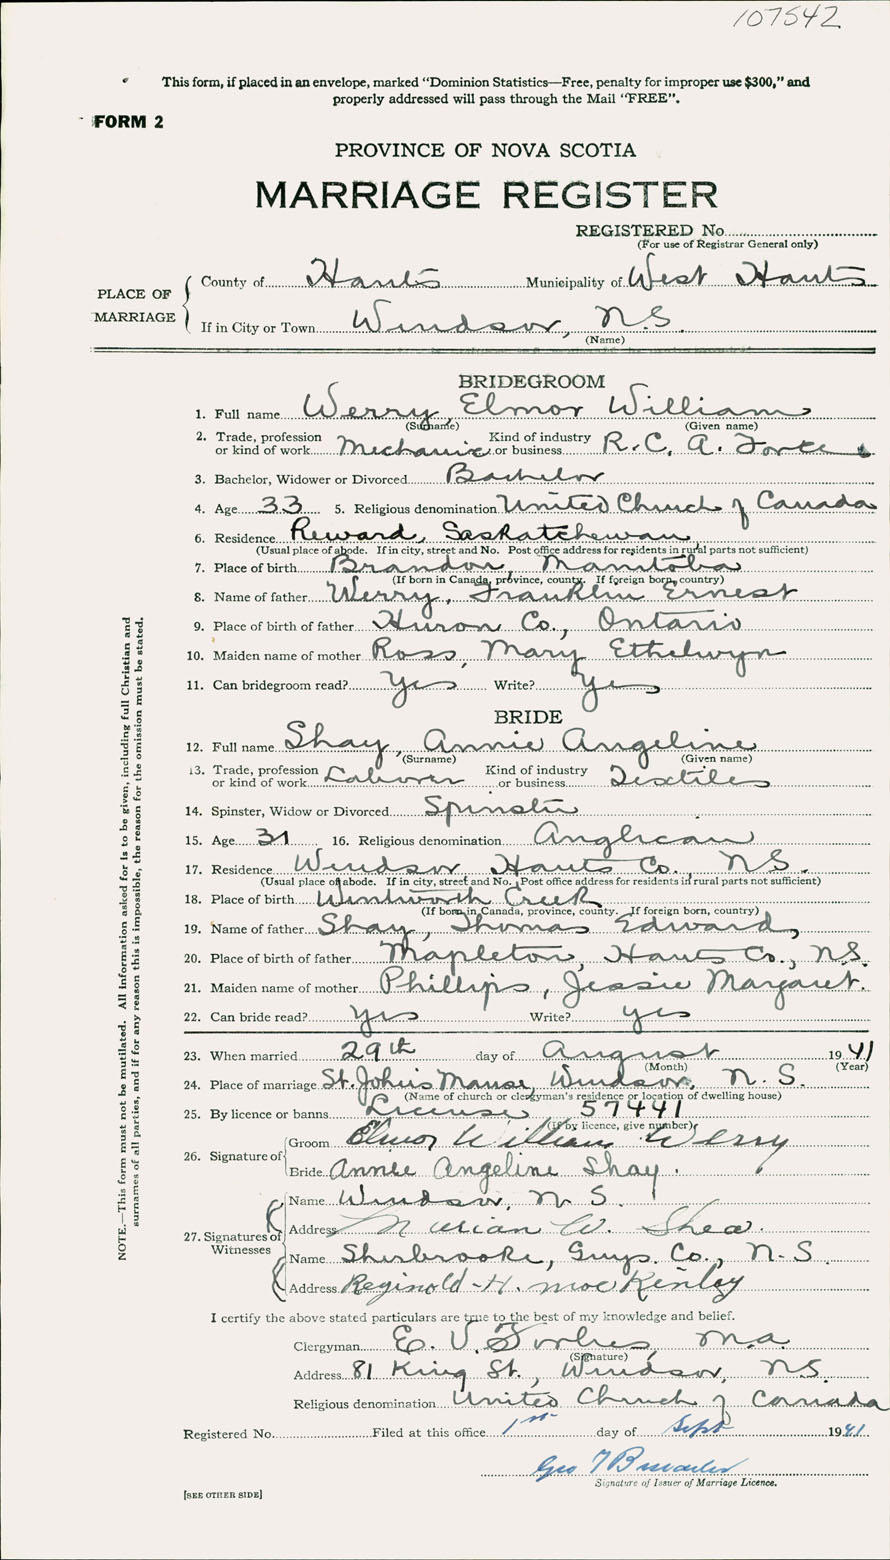 107542
This form, if placed in an envelope, marked "Dominion Statistics—Free, penalty for improper use $300," and
properly addressed will pass through the Mail "FREE".
FORM 2
PROVINCE OF NOVA SCOTIA
MARRIAGE REGISTER
REGISTERED No.
(For use of Registrar General only)
PLACE OF MARRIAGE
County of Hants Municipality of West Hants
If in City or Town Windsor, N.S.
(Name)
BRIDEGROOM
1. Full name Werry, Elmor William
(Surname) (Given name)
2. Trade, profession or kind of work Mechanic Kind of industry or business R.C. A. Force
3. Bachelor, Widower or Divorced Bachelor
4. Age 33 5. Religious denomination United Church of Canada
6. Residence Reward, Saskatchewan
(Usual place of abode. If in city, street and No. Post office address for residents in rural parts not sufficient)
7. Place of birth Brandon, Manitoba
(If born in Canada, province, county. If foreign born, country)
8. Name of father Werry, Franklin Ernest
9. Place of birth of father Huron Co., Ontario
10. Maiden name of mother Ross, Mary Ethelwyn
11. Can bridegroom read? Yes Write? Yes
BRIDE
12. Full name Shay, Annie Angeline
(Surname) (Given name)
13. Trade, profession or kind of work Laborer Kind of industry or business Textiles
14. Spinster, Widow or Divorced Spinster
15. Age 31 16. Religious denomination Anglican
17. Residence Windsor Hants Co. N.S.
(Usual place of abode. If in city, street and No. Post office address for residents in rural parts not sufficient)
18. Place of birth Wentworth Creek
(If born in Canada, province, county. If foreign born, country)
19. Name of father Shay, Thomas Edward,
20. Place of birth of father Mapleton, Hants Co., N.S.
21. Maiden name of mother Phillips, Jessie Margaret.
22. Can bride read? Yes Write? Yes
23. When married 29th day of August 1941
(Month) (Year)
24. Place of marriage St. John's Manse, Windsor, N.S.
(Name of church or clergyman's residence or location of dwelling house)
25. By licence or banns License 57441
(If by licence, give number)
26. Signature of Groom Elmor William Werry
Bride Annie Angeline Shay.
27. Signatures of Witnesses
Name Windsor, N.S.
Address Marian W. Shea.
Name Sherbrooke, Guys. Co., N.S.
Address Reginold H. MacKenley
I certify the above stated particulars are true to the best of my knowledge and belief.
Clergyman E. V. Forbes, M.A.
(Signature)
Address 81 King St., Windsor, N.S.
Religious denomination United Church of Canada
Registered No. Filed at this office 1st day of Sept 1941
Geo
Signature of Issuer of Marriage Licence.
[SEE OTHER SIDE]
NOTE.—This form must not be mutilated. All Information asked for is to be given, including full Christian and
surnames of all parties, and if for any reason this is impossible, the reason for the omission must be stated.